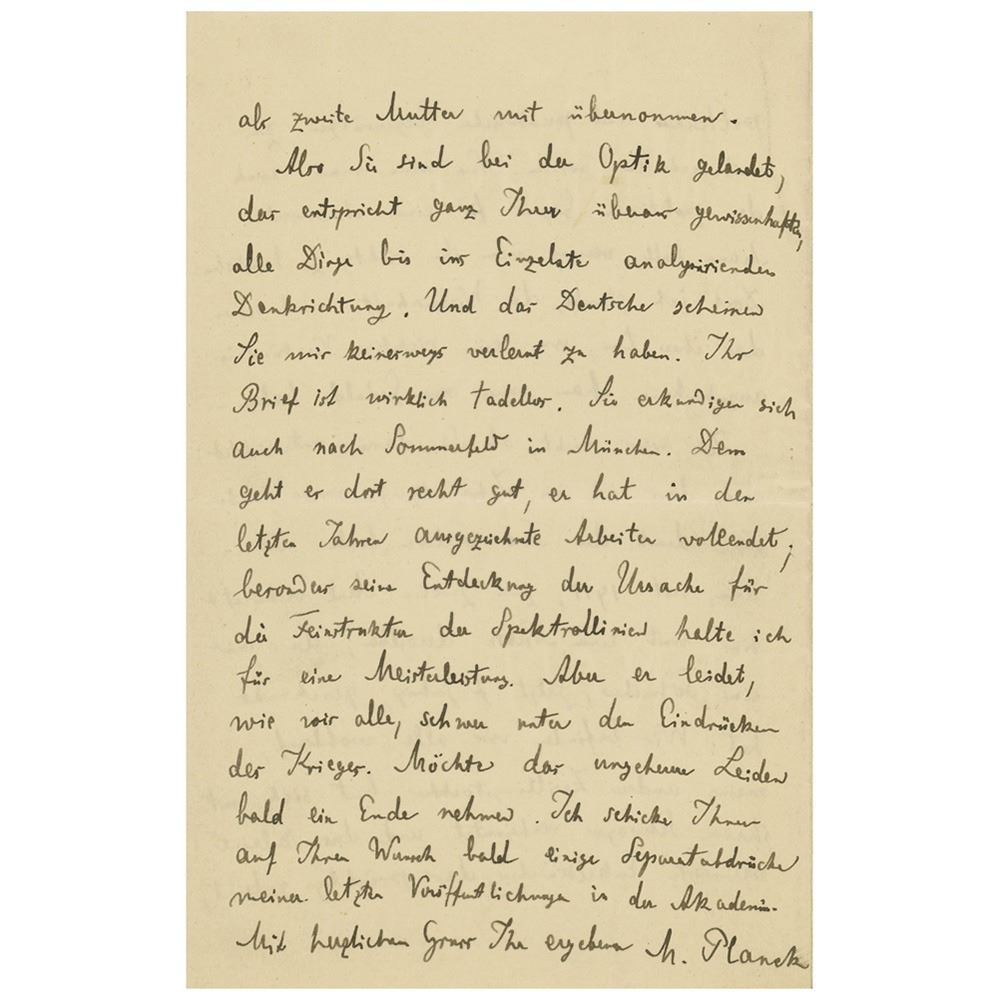 als zweite Mutter mit übernommen.
Also Sie sind bei der Optik gelandet,
das entspricht ganz Ihrer überaus gewissenhaften,
alle Dinge bis ins Einzelste analysirenden
Denkrichtung. Und das Deutsche scheinen
Sie mir keineswegs verlernt zu haben. Ihr
Brief ist wirklich tadellos. Sie erkundigen sich
auch nach Sommerfeld in München. Dem
geht es dort recht gut, er hat in den
letzten Jahren ausgezeichnete Arbeiten vollendet;
besonders seine Entdeckung der Ursache für
die Feinstruktur der Spektrallinien halte ich
für eine Meisterleistung. Aber er leidet,
wie wir alle, schwer unter den Eindrücken
des Krieges. Möchte das ungeheure Leiden
bald ein Ende nehmen. Ich schicke Ihnen
auf Ihren Wunsch bald einige Separatabdrücke
meiner letzten Veröffentlichungen in der Akademie.
Mit herzlichem Gruss Ihr ergebener M. Planck